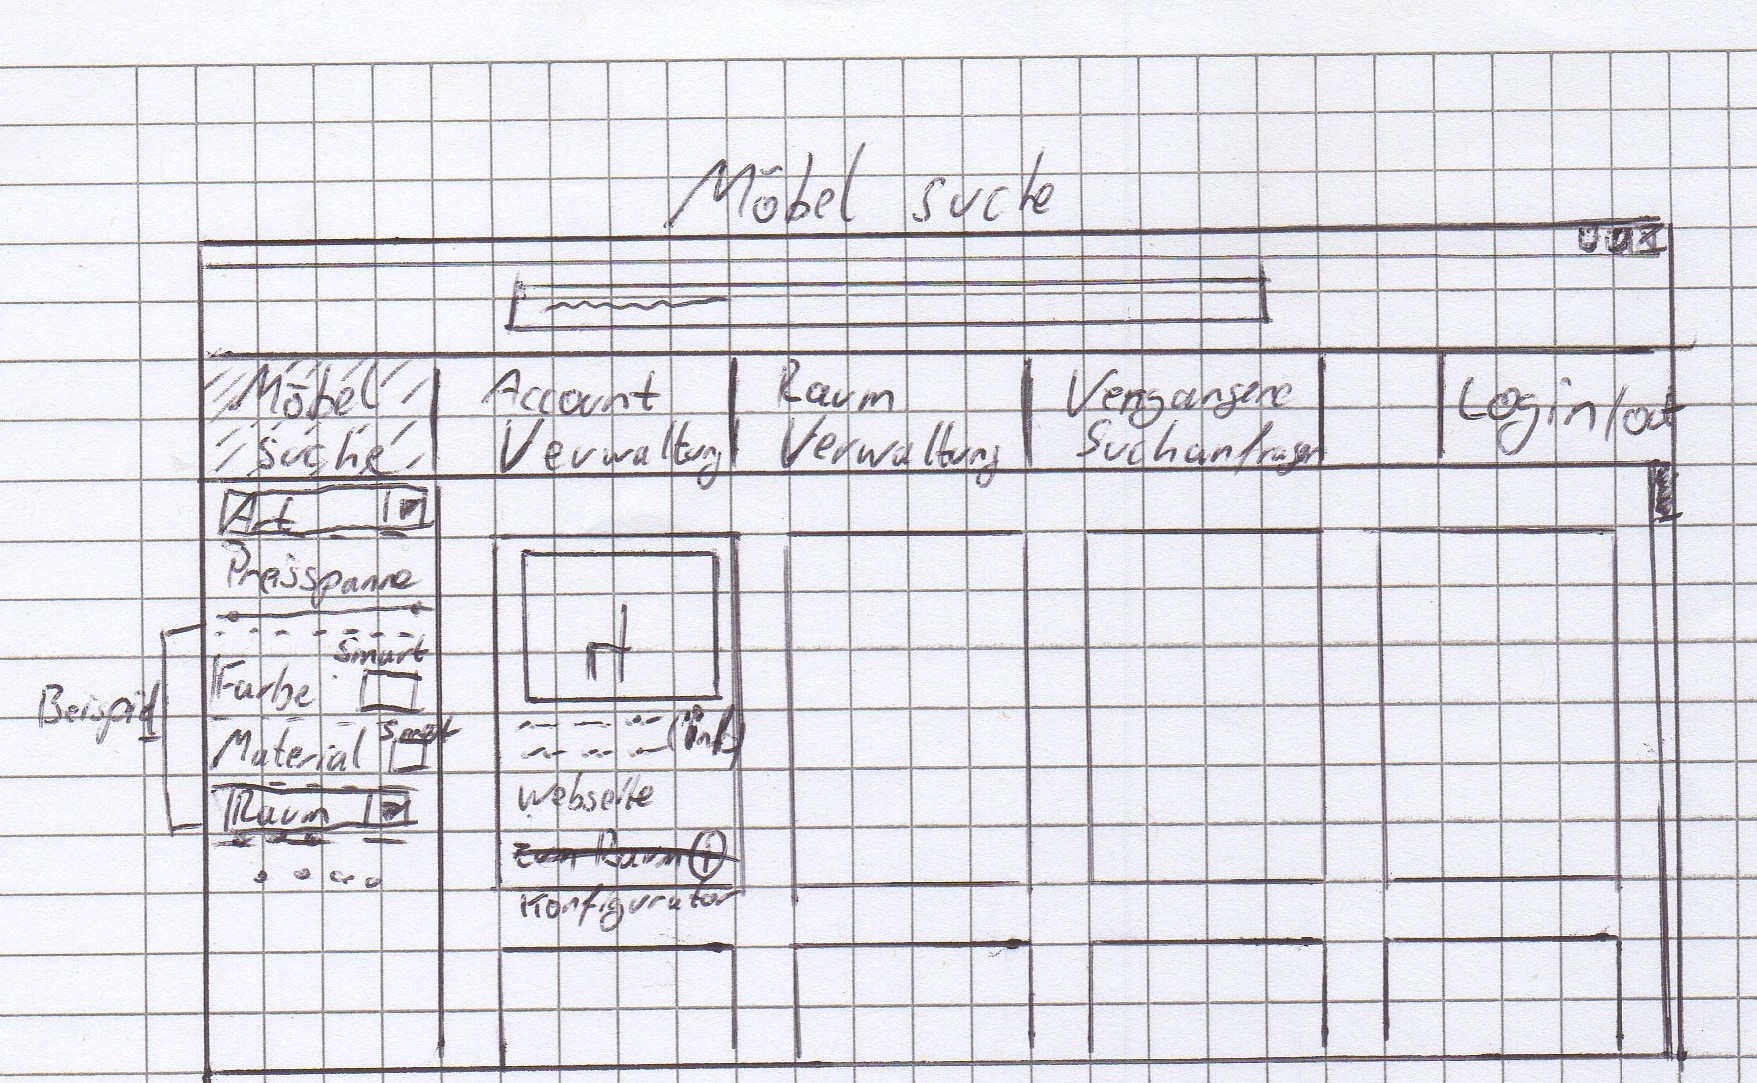 Möbel suche
Möbel
suche
Account
Verwaltung
Raum
Verwaltung
Vergangene
Suchanfragen
Login/out
Art
Preisspanne
Smart
Farbe
Beispiel
Smart
Material
Raum
(Link)
Webseite
zum Raum
Konfigurator